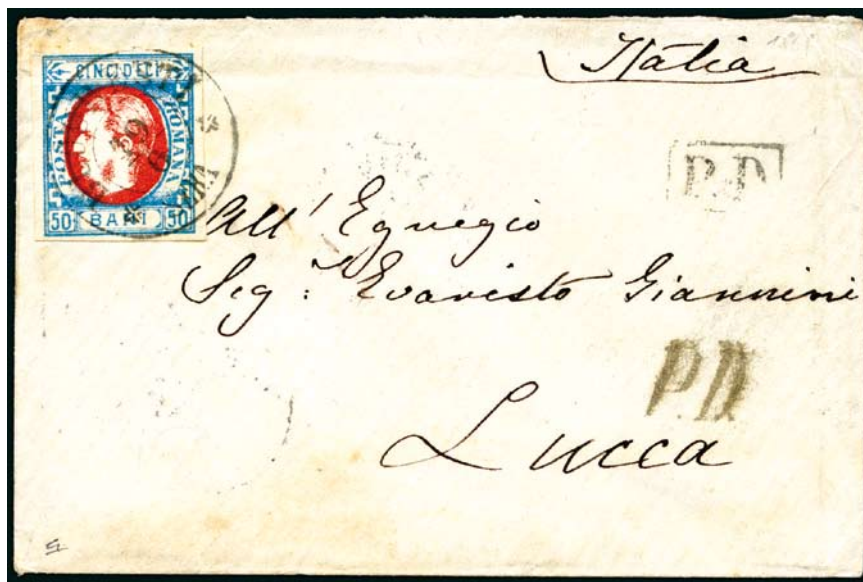 Italia
CINCI DECI
POSTA ROMANA
50 BANI 50
P.D.
All' Egregio
Sig: Evaristo Giannini
P.D.
Lucca